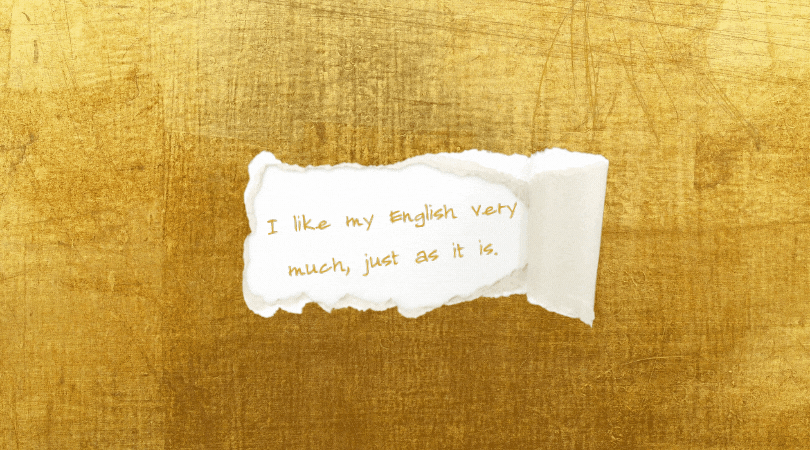 I like my English very
much, just as it is.